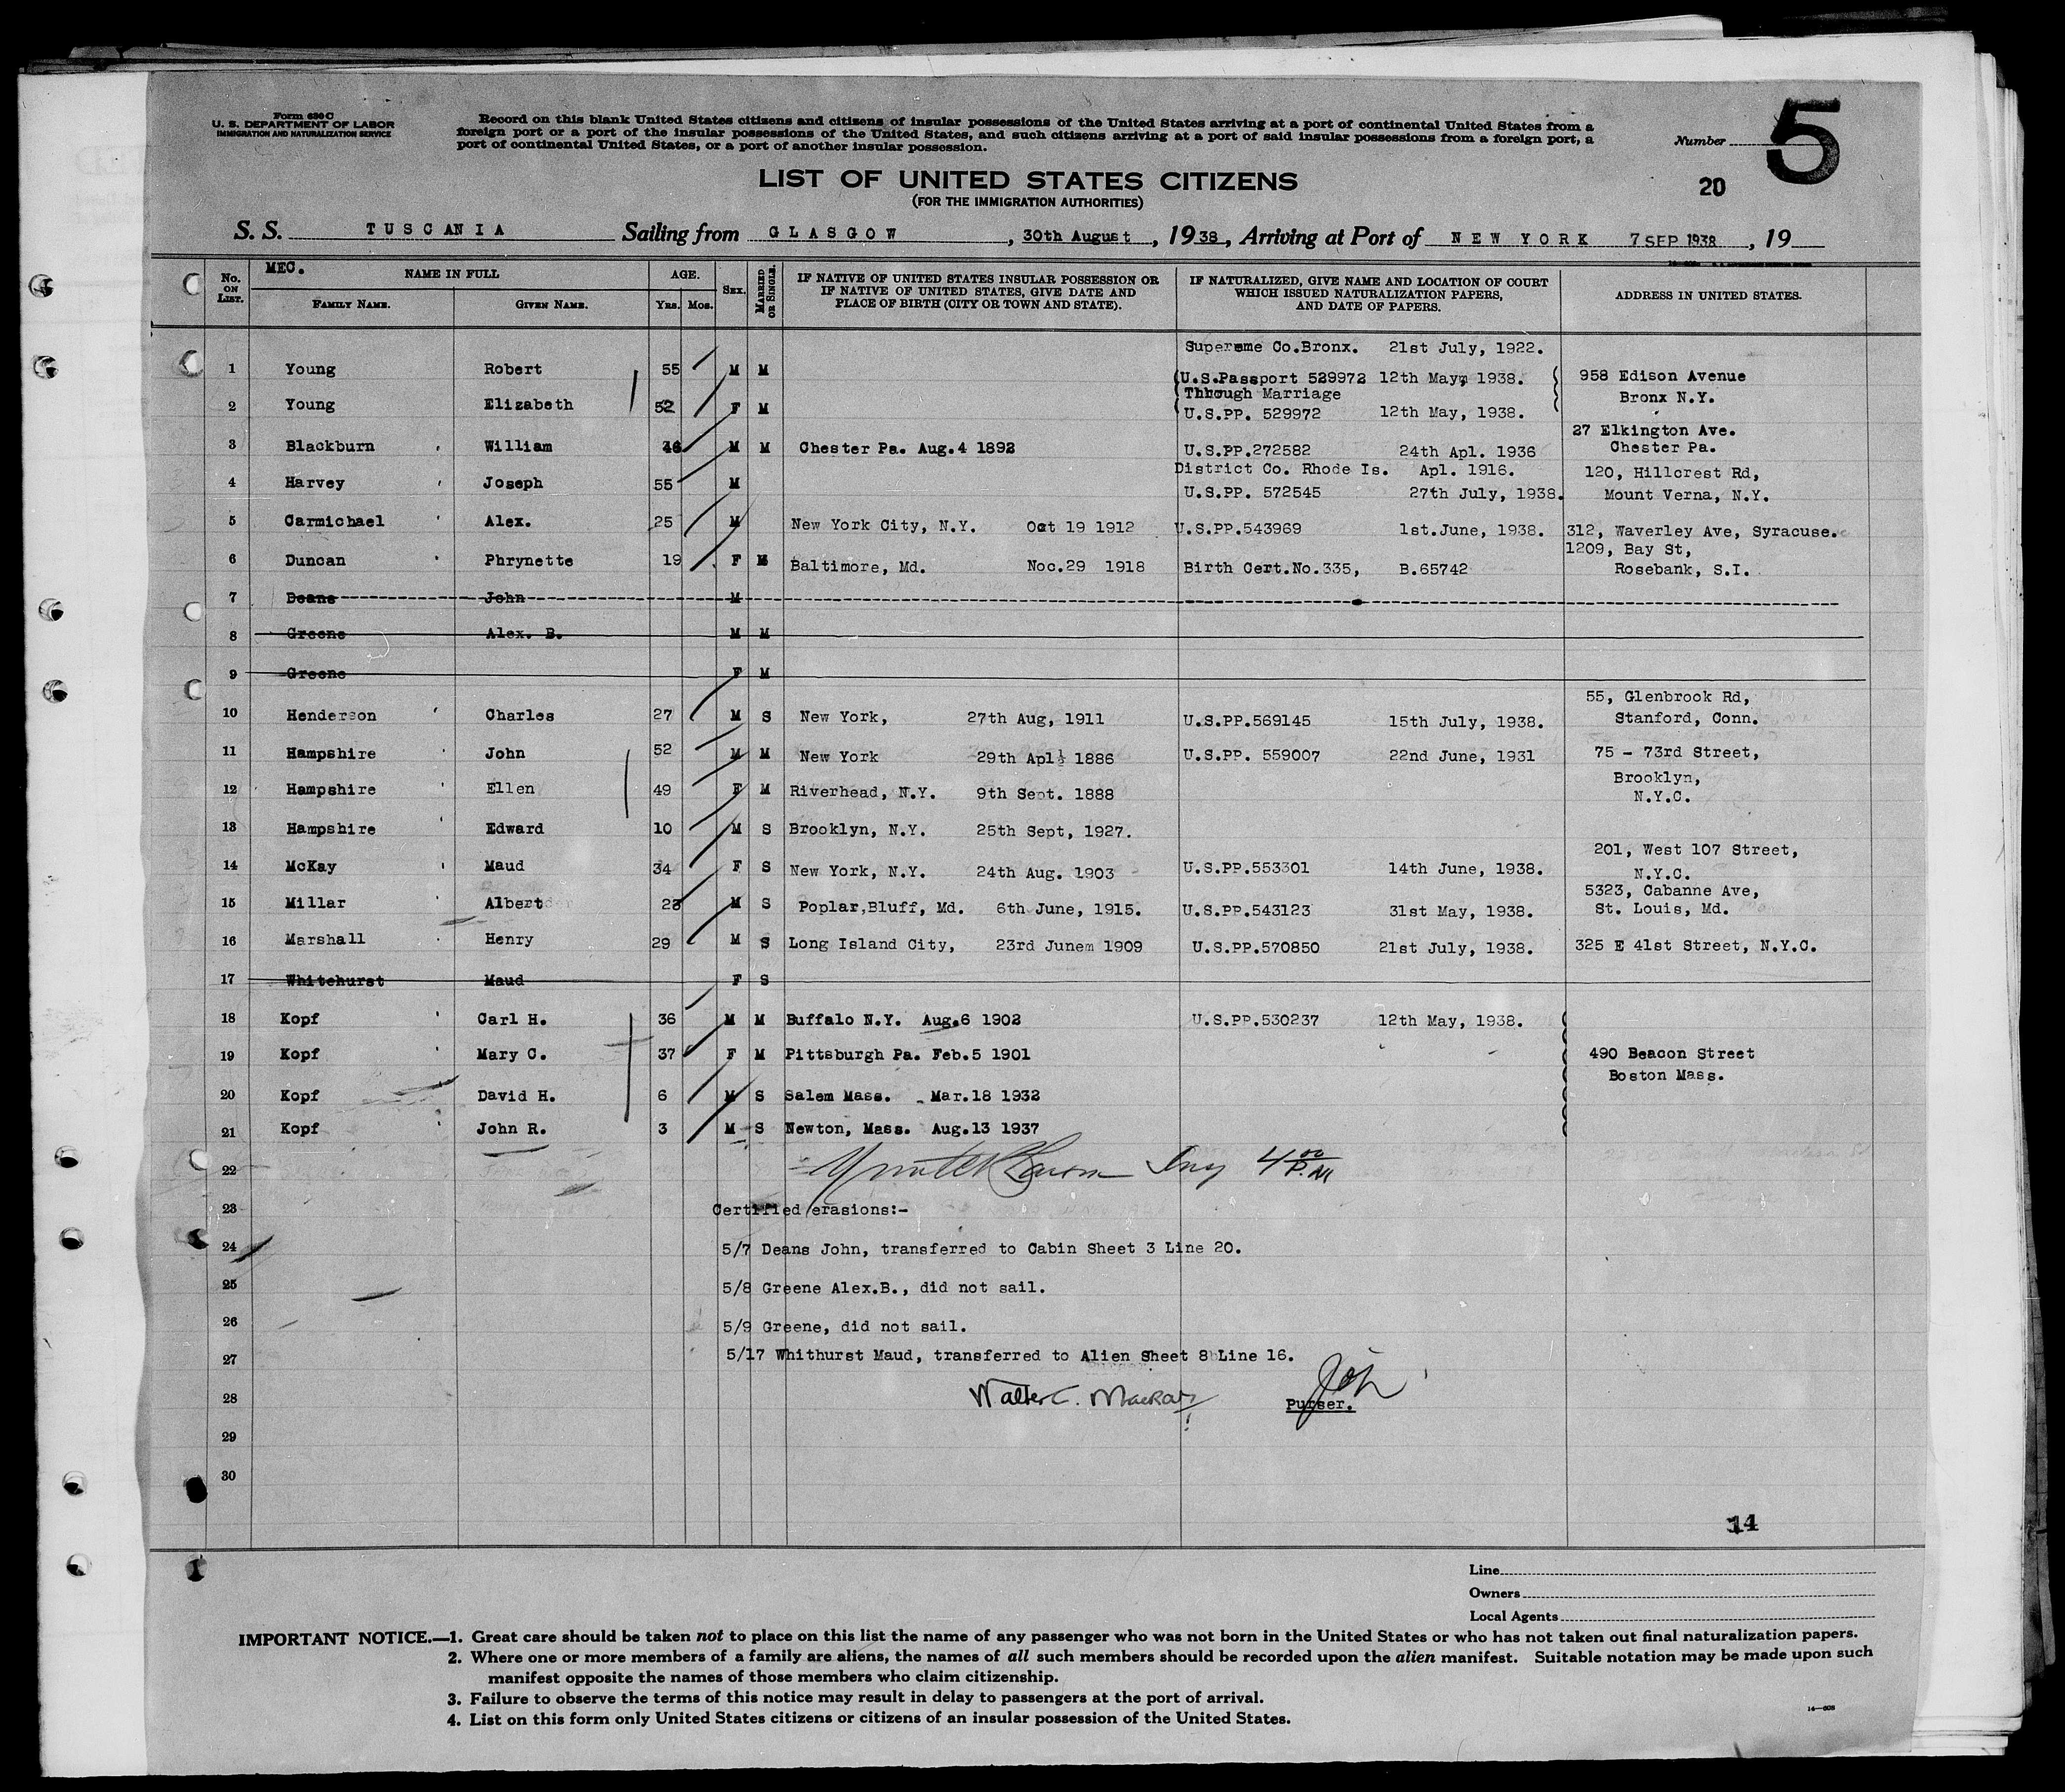 Form 630 C
U. S. DEPARTMENT OF LABOR
IMMIGRATION AND NATURALIZATION SERVICE
Record on this blank United States citizens and citizens of insular possessions of the United States arriving at a port of continental United States from a
foreign port or a port of the insular possessions of the United States, and such citizens arriving at a port of said insular possessions from a foreign port, a
port of continental United States, or a port of another insular possession.
Number 5
20
LIST OF UNITED STATES CITIZENS
(FOR THE IMMIGRATION AUTHORITIES)
S. S. TUSCANIA Sailing from GLASGOW, 30th August, 1938, Arriving at Port of NEW YORK 7 SEP 1938, 19
No. ON LIST. MEC. NAME IN FULL AGE. SEX. MARRIED OR SINGLE. IF NATIVE OF UNITED STATES INSULAR POSSESSION OR IF NATIVE OF UNITED STATES, GIVE DATE AND PLACE OF BIRTH (CITY OR TOWN AND STATE). IF NATURALIZED, GIVE NAME AND LOCATION OF COURT WHICH ISSUED NATURALIZATION PAPERS, AND DATE OF PAPERS. ADDRESS IN UNITED STATES.
FAMILY NAME. GIVEN NAME. YRS. MOS.
Supereme Co.Bronx. 21st July, 1922.
1 Young Robert 55 M M U.S.Passport 529972 12th May, 1938. 958 Edison Avenue
Through Marriage Bronx N.Y.
2 Young Elizabeth 52 F M U.S.PP. 529972 12th May, 1938.
27 Elkington Ave.
3 Blackburn William 46 M M Chester Pa. Aug.4 1892 U.S.PP.272582 24th Apl. 1936 Chester Pa.
District Co. Rhode Is. Apl. 1916. 120, Hillcrest Rd,
4 Harvey Joseph 55 M U.S.PP. 572545 27th July, 1938. Mount Verna, N.Y.
5 Carmichael Alex. 25 M New York City, N.Y. Oct 19 1912 U.S.PP.543969 1st.June, 1938. 312, Waverley Ave, Syracuse.
1209, Bay St,
6 Duncan Phrynette 19 F M Baltimore, Md. Noc.29 1918 Birth Cert.No.335, B.65742 Rosebank, S.I.
7 Deans John M
8 Greene Alex. B. M M
9 Greene F M
55, Glenbrook Rd,
10 Henderson Charles 27 M S New York, 27th Aug, 1911 U.S.PP.569145 15th July, 1938. Stanford, Conn.
11 Hampshire John 52 M M New York 29th Apl 1886 U.S.PP. 559007 22nd June, 1931 75 - 73rd Street,
Brooklyn,
12 Hampshire Ellen 49 F M Riverhead, N.Y. 9th Sept. 1888 N.Y.C.
13 Hampshire Edward 10 M S Brooklyn, N.Y. 25th Sept, 1927.
201, West 107 Street,
14 McKay Maud 34 F S New York, N.Y. 24th Aug. 1903 U.S.PP.553301 14th June, 1938. N.Y.C.
5323, Cabanne Ave,
15 Millar Albert 23 M S Poplar,Bluff, Md. 6th June, 1915. U.S.PP.543123 31st May, 1938. St. Louis, Md.
16 Marshall Henry 29 M S Long Island City, 23rd Junem 1909 U.S.PP.570850 21st July, 1938. 325 E 41st Street, N.Y.C.
17 Whitehurst Maud F S
18 Kopf Carl H. 36 M M Buffalo N.Y. Aug.6 1902 U.S.PP.530237 12th May, 1938.
19 Kopf Mary C. 37 F M Pittsburgh Pa. Feb.5 1901 490 Beacon Street
Boston Mass.
20 Kopf David H. 6 M S Salem Mass. Mar.18 1932
21 Kopf John R. 3 M S Newton, Mass. Aug.13 1937
22 4 00 P.M
23 Certified erasions:-
24 5/7 Deans John, transferred to Cabin Sheet 3 Line 20.
25 5/8 Greene Alex.B., did not sail.
26 5/9 Greene, did not sail.
27 5/17 Whithurst Maud, transferred to Alien Sheet 8 Line 16.
28 Walter C. Purser.
29
30
14
Line
Owners
Local Agents
IMPORTANT NOTICE.—1. Great care should be taken not to place on this list the name of any passenger who was not born in the United States or who has not taken out final naturalization papers.
2. Where one or more members of a family are aliens, the names of all such members should be recorded upon the alien manifest. Suitable notation may be made upon such
manifest opposite the names of those members who claim citizenship.
3. Failure to observe the terms of this notice may result in delay to passengers at the port of arrival.
4. List on this form only United States citizens or citizens of an insular possession of the United States.